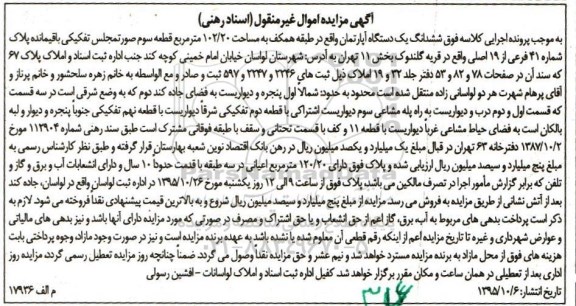 آگهی مزایده اموال غیر منقول (اسناد رهنی)
به موجب پرونده اجرایی کلاسه فوق ششدانگ یک دستگاه آپارتمان واقع در طبقه همکف به مساحت ۱۰۲/۲۰ متر مربع قطعه سوم صورتمجلس تفکیکی باقیمانده پلاک
شماره ۴۱ فرعی از ۱۹ اصلی واقع در قریه گلندوک بخش ۱۱ تهران به آدرس: شهرستان لواسان خیابان امام خمینی کوچه کند جنب اداره ثبت اسناد و املاک پلاک ۶۷
که سند آن در صفحات ۷۸ و ۸۲ و ۵۳ دفتر جلد ۳۲ و ۱۹ املاک ذیل ثبت های ۲۲۴۶ و ۲۲۴۷ و ۵۹۷ ثبت و صادر و مع الواسطه به خانم زهره سلحشور و خانم پرناز و
آقای پرهام شهرت هر دو لواسانی زاده منتقل شده است محدود به حدود: شمالا اول پنجره و دیواریست به فضای جاده کند دوم که به وضع شرقی است در سه قسمت
که قسمت اول و دوم درب و دیواریست به راه پله مشاعی سوم دیواریست اشتراکی با قطعه دوم تفکیکی شرقاً دیواریست با قطعه نهم تفکیکی جنوباً پنجره و دیوار و لبه
بالکان است به فضای حیاط مشاعی غرباً دیواریست با قطعه ۱۱ و کف با قسمت تحتانی و سقف با طبقه فوقانی مشترک است طبق سند رهنی شماره ۱۱۲۹۰۴ مورخ
۱۳۸۷/۱۰/۲ دفترخانه ۶۳ تهران در قبال مبلغ یک میلیارد و یکصد میلیون ریال در رهن بانک اقتصاد نوین شعبه بهارستان قرار گرفته و طبق نظر کارشناس رسمی به
مبلغ پنج میلیارد و سیصد میلیون ریال ارزیابی شده و پلاک فوق دارای ۱۲۰/۲۰ متر مربع اعیانی در سه طبقه با قدمت حدوداً ۱۰ سال و دارای انشعابات آب و برق و گاز و
تلفن که برابر گزارش مامور اجرا در تصرف مالکین می باشد، پلاک فوق از ساعت ۹ الی ۱۲ روز یکشنبه مورخ ۱۳۹۵/۱۰/۲۶ در اداره ثبت لواسان واقع در لواسان، جاده کند
بعد از آتش نشانی از طریق مزایده به فروش می رسد، مزایده از مبلغ پنج میلیارد و سیصد میلیون ریال شروع و به بالاترین قیمت پیشنهادی نقداً فروخته می شود. لازم به
ذکر است پرداخت بدهی های مربوط به آب، برق، گاز اعم از حق انشعاب و یا حق اشتراک و مصرف در صورتی که مورد مزایده دارای آنها باشد و نیز بدهی های مالیاتی
و عوارض شهرداری و غیره تا تاریخ مزایده اعم از اینکه رقم قطعی آن معلوم شده یا نشده باشد به عهده برنده مزایده است و نیز در صورت وجود مازاد، وجوه پرداختی بابت
هزینه های فوق از محل مازاد به برنده مزایده مسترد خواهد شد و نیم عشر و حق مزایده نقداً وصول می گردد. ضمناً چنانچه روز مزایده تعطیل رسمی گردد، مزایده روز
اداری بعد از تعطیلی در همان ساعت و مکان مقرر برگزار خواهد شد. کفیل اداره ثبت اسناد و املاک لواسانات - افشین رسولی
تاریخ انتشار: ۱۳۹۵/۱۰/۶
م الف ۱۷۹۳۶